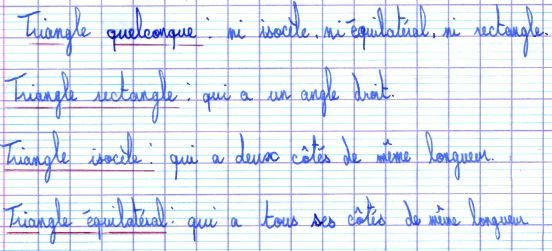 Triangle quelconque : ni isocèle, ni équilatéral, ni rectangle.
Triangle rectangle : qui a un angle droit.
Triangle isocèle : qui a deux côtés de même longueur.
Triangle équilatéral : qui a tous ses côtés de même longueur